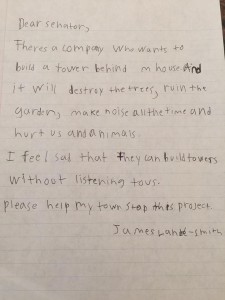 Dear senator,
Theres a company who wants to
build a tower behind m house And
it will destroy the trees, ruin the
garden, make noise all the time and
hurt us and animals.
I feel sad that they can build towers
without listening to us.
please help my town stop this project
James